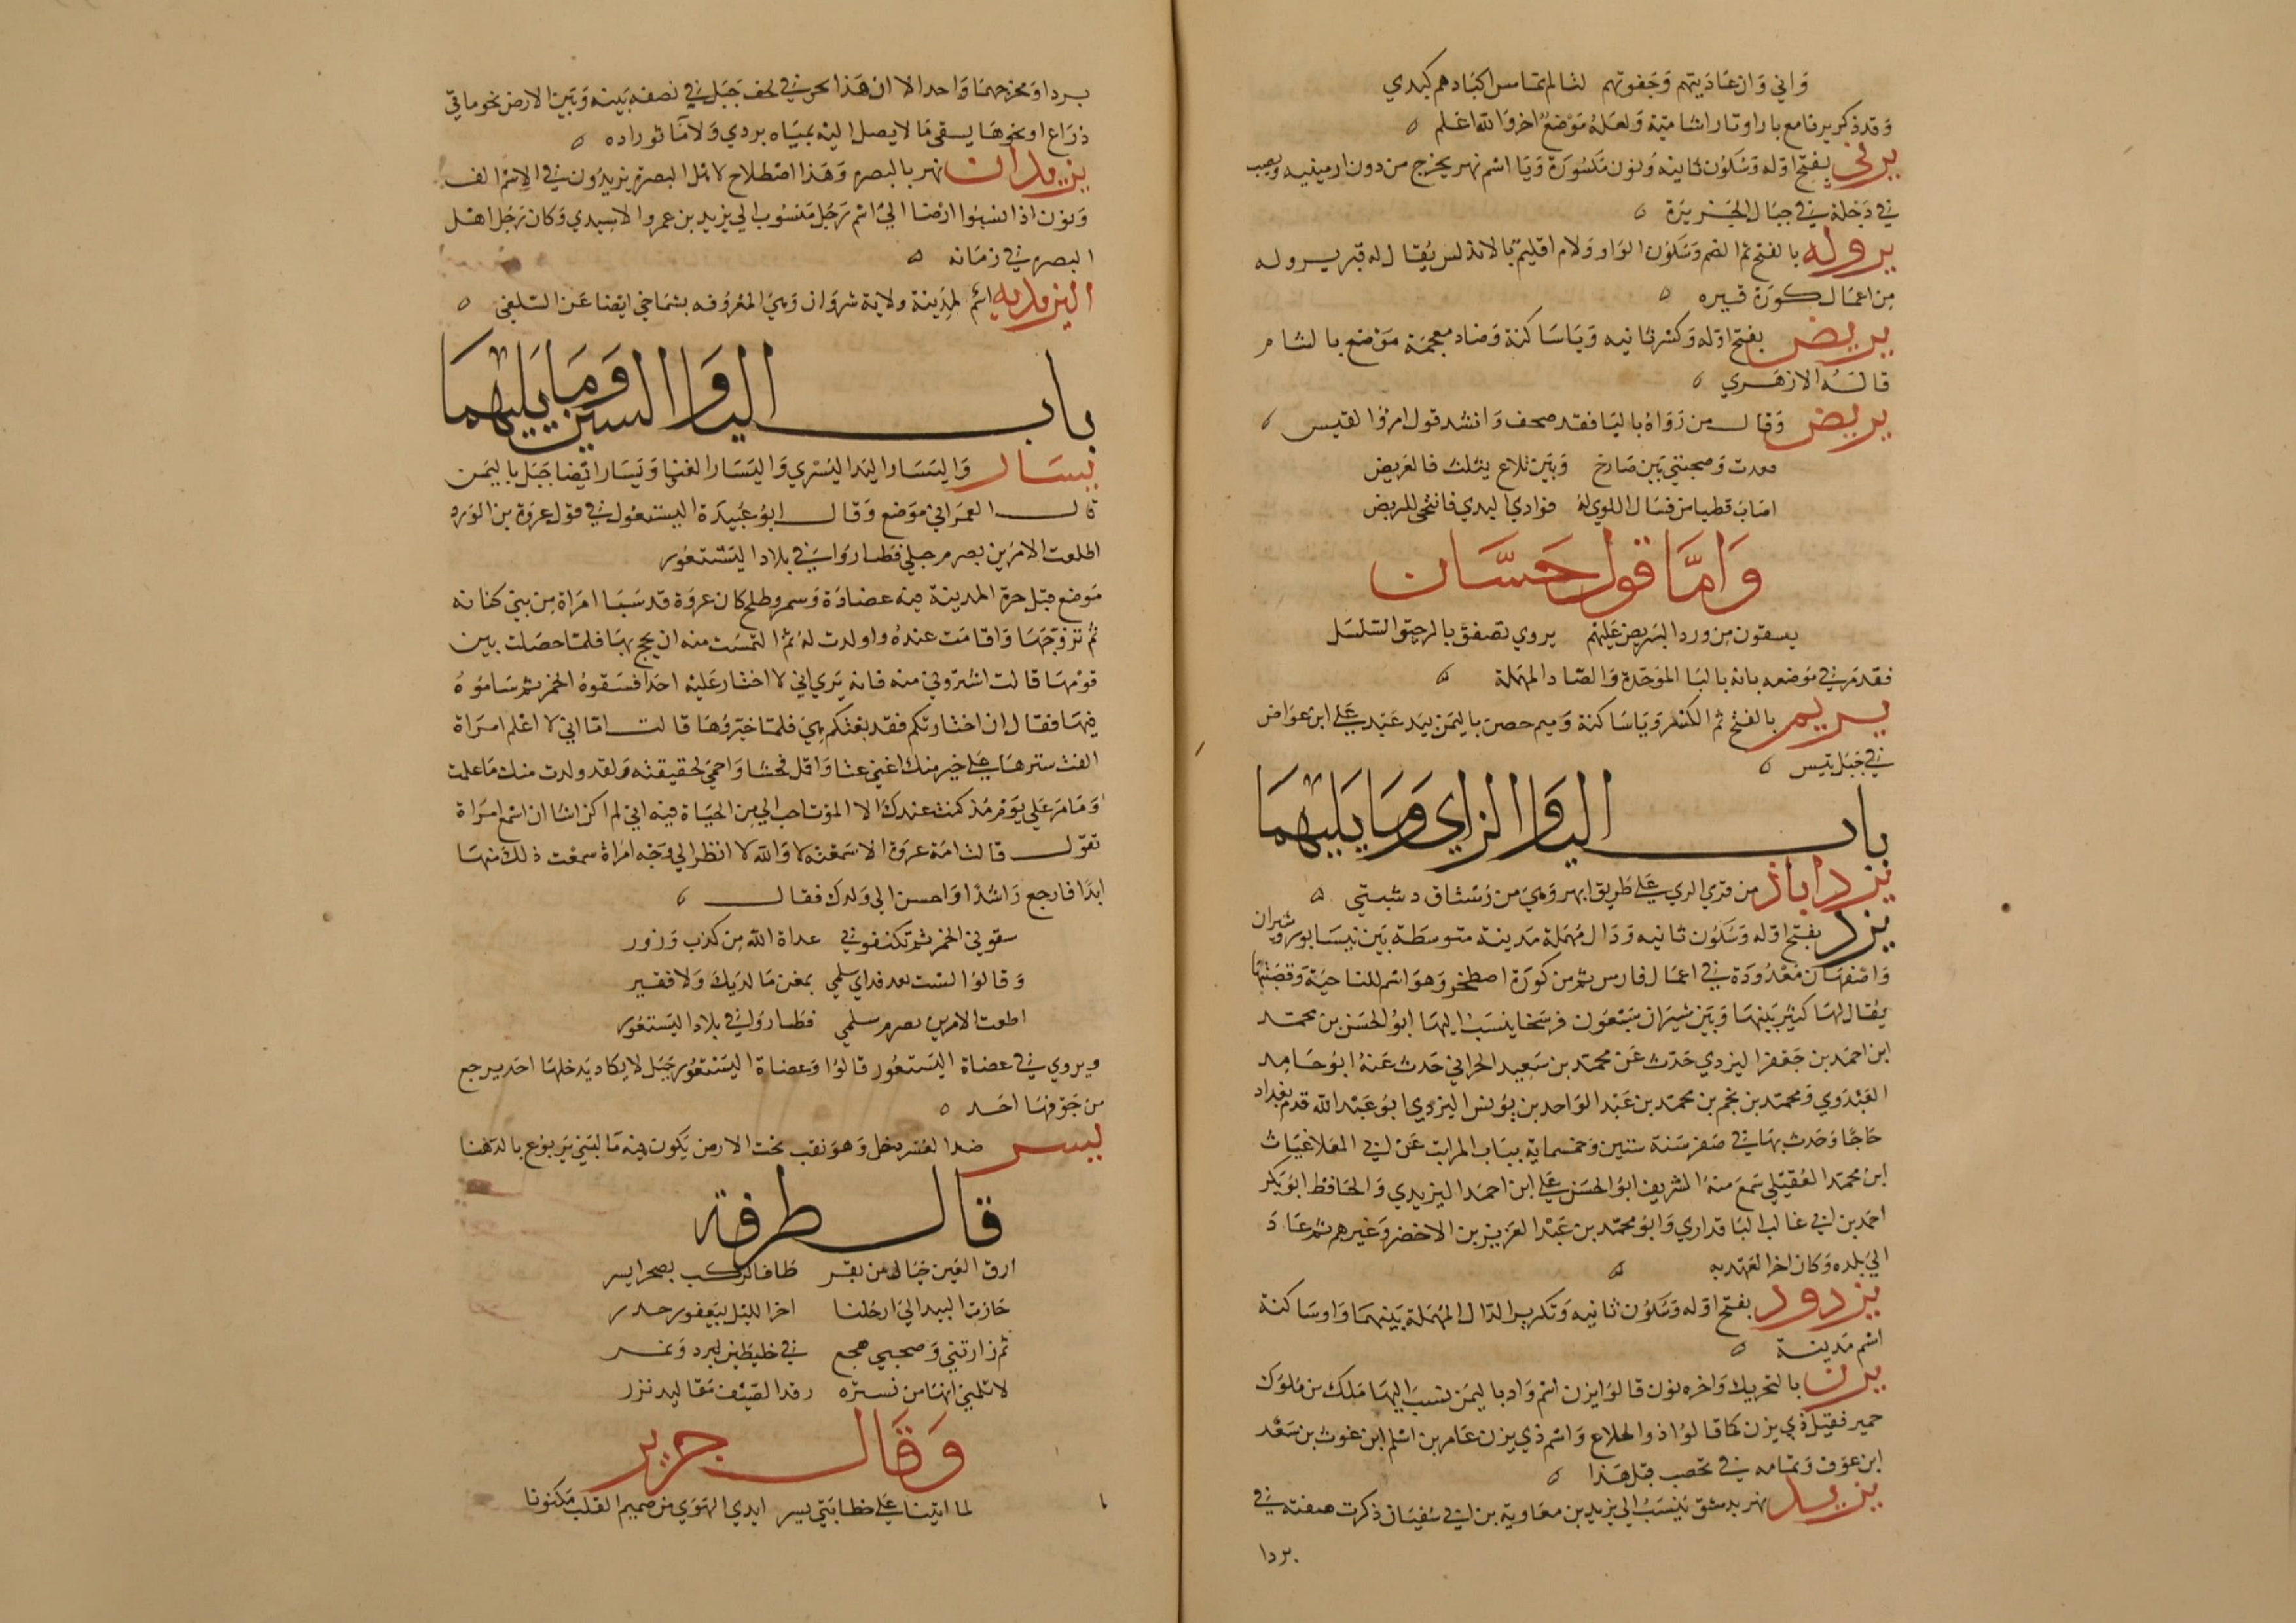 وَاني وَان عَادَيتهم وَجَفوتهم لتالم تماس اكبادهم كبدي
وَقد ذكر يرنا مع بارا وتارا شامية وَلعَله مَوْضع اخر وَالله اعلم
يرني بفتح اوله وَسكون ثانيه وَنون مكسورَة وَيا اسم نهر يخرج من دون ارمينيه ويصب
في دَجلة في جبال الجَزيرَة
يروله بالفتح ثم الضم وَسكون الوَاو وَلام اقليم بالاندلس يُقال له قبر يروله
مِن اعمال كورَة قبره
يريض بفتح اوله وَكسر ثانيه وَيَا سَاكنة وَضاد معجمة مَوْضع بالشام
قالهُ الازهَري
يريض وَقال من رَوَاهُ باليَا فقد صحف وَانشد قول امرؤ القيس
معدت وَصحبتي بَين ضَارج وَبَين تلاع يثلث فالعَريض
اصَابَ قطياس فسَال اللوي له فوَادي البدي فانتحى لليريض
وَامَّا قول حَسَّان
يسقون مِن ورد البريص عَليهم بردي تصفق بالرحيق السَّلسَل
فقد مر في مَوضعه بانه بالبا الموَحدَة وَالصاد المهملة
يريم بالفتح ثم الكسر وَيَا سَاكنة وَميم حصن باليمن بيد عَبد عَلي ابن عوَاض
في جَبَل تيس
باب اليا وَالزاي وَمَا يَليهمَا
يزداباذ من قري الري عَلى طَريق ابهر وَهيَ من رُستاق دشبتي
يزد بفتح اوله وَسكون ثانيه وَدَال مُهمَلة مَدينة متوسطة بَين نيسَابور وشيران
وَاصفهَان مَعْدُودَة في اعمَال فارس ثم من كورَة اصطخر وَهوَ اسم للناحيَة وَقصَبتهَا
يُقال لهَا كثير بَينهَا وَبَين شيرَان سَبْعُون فرسَخا ينسَب اليهَا ابوُ الحسَن بن محمد
ابن احمد بن جَعفر اليزدي حَدث عَن محمد بن سَعِيد الحراني حَدث عَنهُ ابوُ حَامِد
العَبْدَوي وَمحمد بن نجم بن محمد بن عَبْد الوَاحد بن يوُنس اليزدي ابوُ عَبْد الله قدم بغداد
حَاجًا وَحَدث بهَا في صَفر سَنة ستين وَخمسماية ببَاب المراتب عَن ابي العَلا غيَاث
ابن محمد العُقيلي سَمعَ منهُ الشريف ابوُ الحسَن عَلي ابن احمَد اليزيدي وَالحَافظ ابوُ بَكر
احمَد بن ابي غالب البَاقداري وَابوُ محمد بن عَبْد العَزيز بن الاخضر وَغيرهم ثم عَادَ
الي بَلده وَكان اخر العَهد به
يزدود بفتح اوله وَسكون ثانيه وَتكرير الدَال المُهمَلة بَينهمَا وَاو سَاكنة
اسم مَدينة
يزن بالتحريك وَاخره نون قالوُا يزن اسم وَاد باليمَن نسبَ اليهَا مَلك من ملوك
حمير فقيل ذي يزن كما قالوُا ذو الهلاع وَاسم ذي يزن عَامر بن اسْلم ابن غوث بن سَعْد
ابن عوَف وَتمامه في يحصب قبل هَذا
يزيد نهر بدمشق يَنسَبُ الي يزيد بن معَاوية بن ابي سُفيَان ذكرت صفته في
بردا
بردا وَمخرَجهمَا وَاحد الا ان هَذا يخرج في لحف جَبَل في نصفه بَينه وَبَين الارض نحو مائتي
ذرَاع او نحوهَا يسقي مَا لا يصل اليه بميَاه بردي وَلا مَا ثوراده
يزيدان نهر بالبصره وَهَذا اصْطلاح لاهل البصرة يزيدُون في الاسم الف
وَنون اذا نسَبوُا ارْضا الي اسم رَجُل مَنسوُب الي يزيد بن عمرو الاسيدي وَكان رَجُل اهْل
البصره في زمَانه
اليزيديه اسم لمدينة ولاية شروَان وَهيَ المعْروُفه بشمَاخي ايْضا عَن السّلفي
باب اليا وَالسين وَمَا يَليهمَا
يسَار وَاليسَار اليَد اليُسْري وَاليَسَار الغني وَيَسَار ايْضا جَبَل باليمَن
قال العمرَاني مَوْضع وَقال ابوُ عُبَيدَة اليستعول في قول عروَة بن الوَرد
اطلعت الامرين بصرم حبلي فطاروا في بلاد اليَسْتعوُر
مَوْضع قبل حرة المدينة فيه عضَادَة وَسمر وطلح كان عروَة قد سَبَا امرَاة من بني كنانه
ثم تزوّجهَا وَاقامَت عندهُ وَاولدت لهُ ثم التمسَت منه ان يحج بهَا فلمّا حصَلت بين
قوْمهَا قالت اشْتروُني منه فانه يَري اني لا اختار عَليْه احَدا فسَقوهُ الخمر ثم سَاموُهُ
فيهَا فقال ان اختارتكم فقد بعْتكم هِيَ فلمّا خيّروُهَا قالت امّا اني لا اعْلم امرَاة
القت سترهَا عَلى خير منك اغني عنا وَاقل فحشا وَاحمي لحقيقة وَلقد ولدت منك مَا علمت
وَمَا مر عَلي يَوْم مُذ كنت عندك الا الموت احب الي من الحيَاة فيه اني لم اكن اشا ان اسْمع امرَاة
تقول قالت امَة عروَة الا سَمعْته لا وَالله لا انظر الي وَجه امرَاة سمعْت ذلك منهَا
ابدًا فارجع رَاشدًا وَاحسن الي وَلدك فقال
سقوني الخمر ثم تكنفوني عداة الله من كذب وَزور
وَقالوُا لسْت بعد فداي سلمي بمغن مَا لدَيك وَلا فقير
اطعت الامرين بصرم سلمي فطاروُا في بلاد اليَستعوُر
ويروي في عضاة اليَستعوُر قالوُا وَعضاة اليَسْتعوُر جَبَل لا يكاد يَدخلهَا احَد يرجع
من جَوْفهَا احَد
يسر ضد العسر دخل وَهوَ نقب تحت الارض يَكون فيه مَا لبَني يَربوُع بالدّهنا
قال طرفة
ارق العَين خيَال من يقر طَاف الركب بصحرا يسر
جَازت البيد الي ارحُلنا اخر الليْل بيَعفور خدر
ثم زارتني وَصحبي هجع في خليط بين برد وَنمر
لا تلمني انهَا من نسْوه رقد الصّيْف مَقاليد نزر
وَقال جرير
لما اتينا عَلى خطابتي يسر ابدي الهوَي من صميم القلب مَكنونا